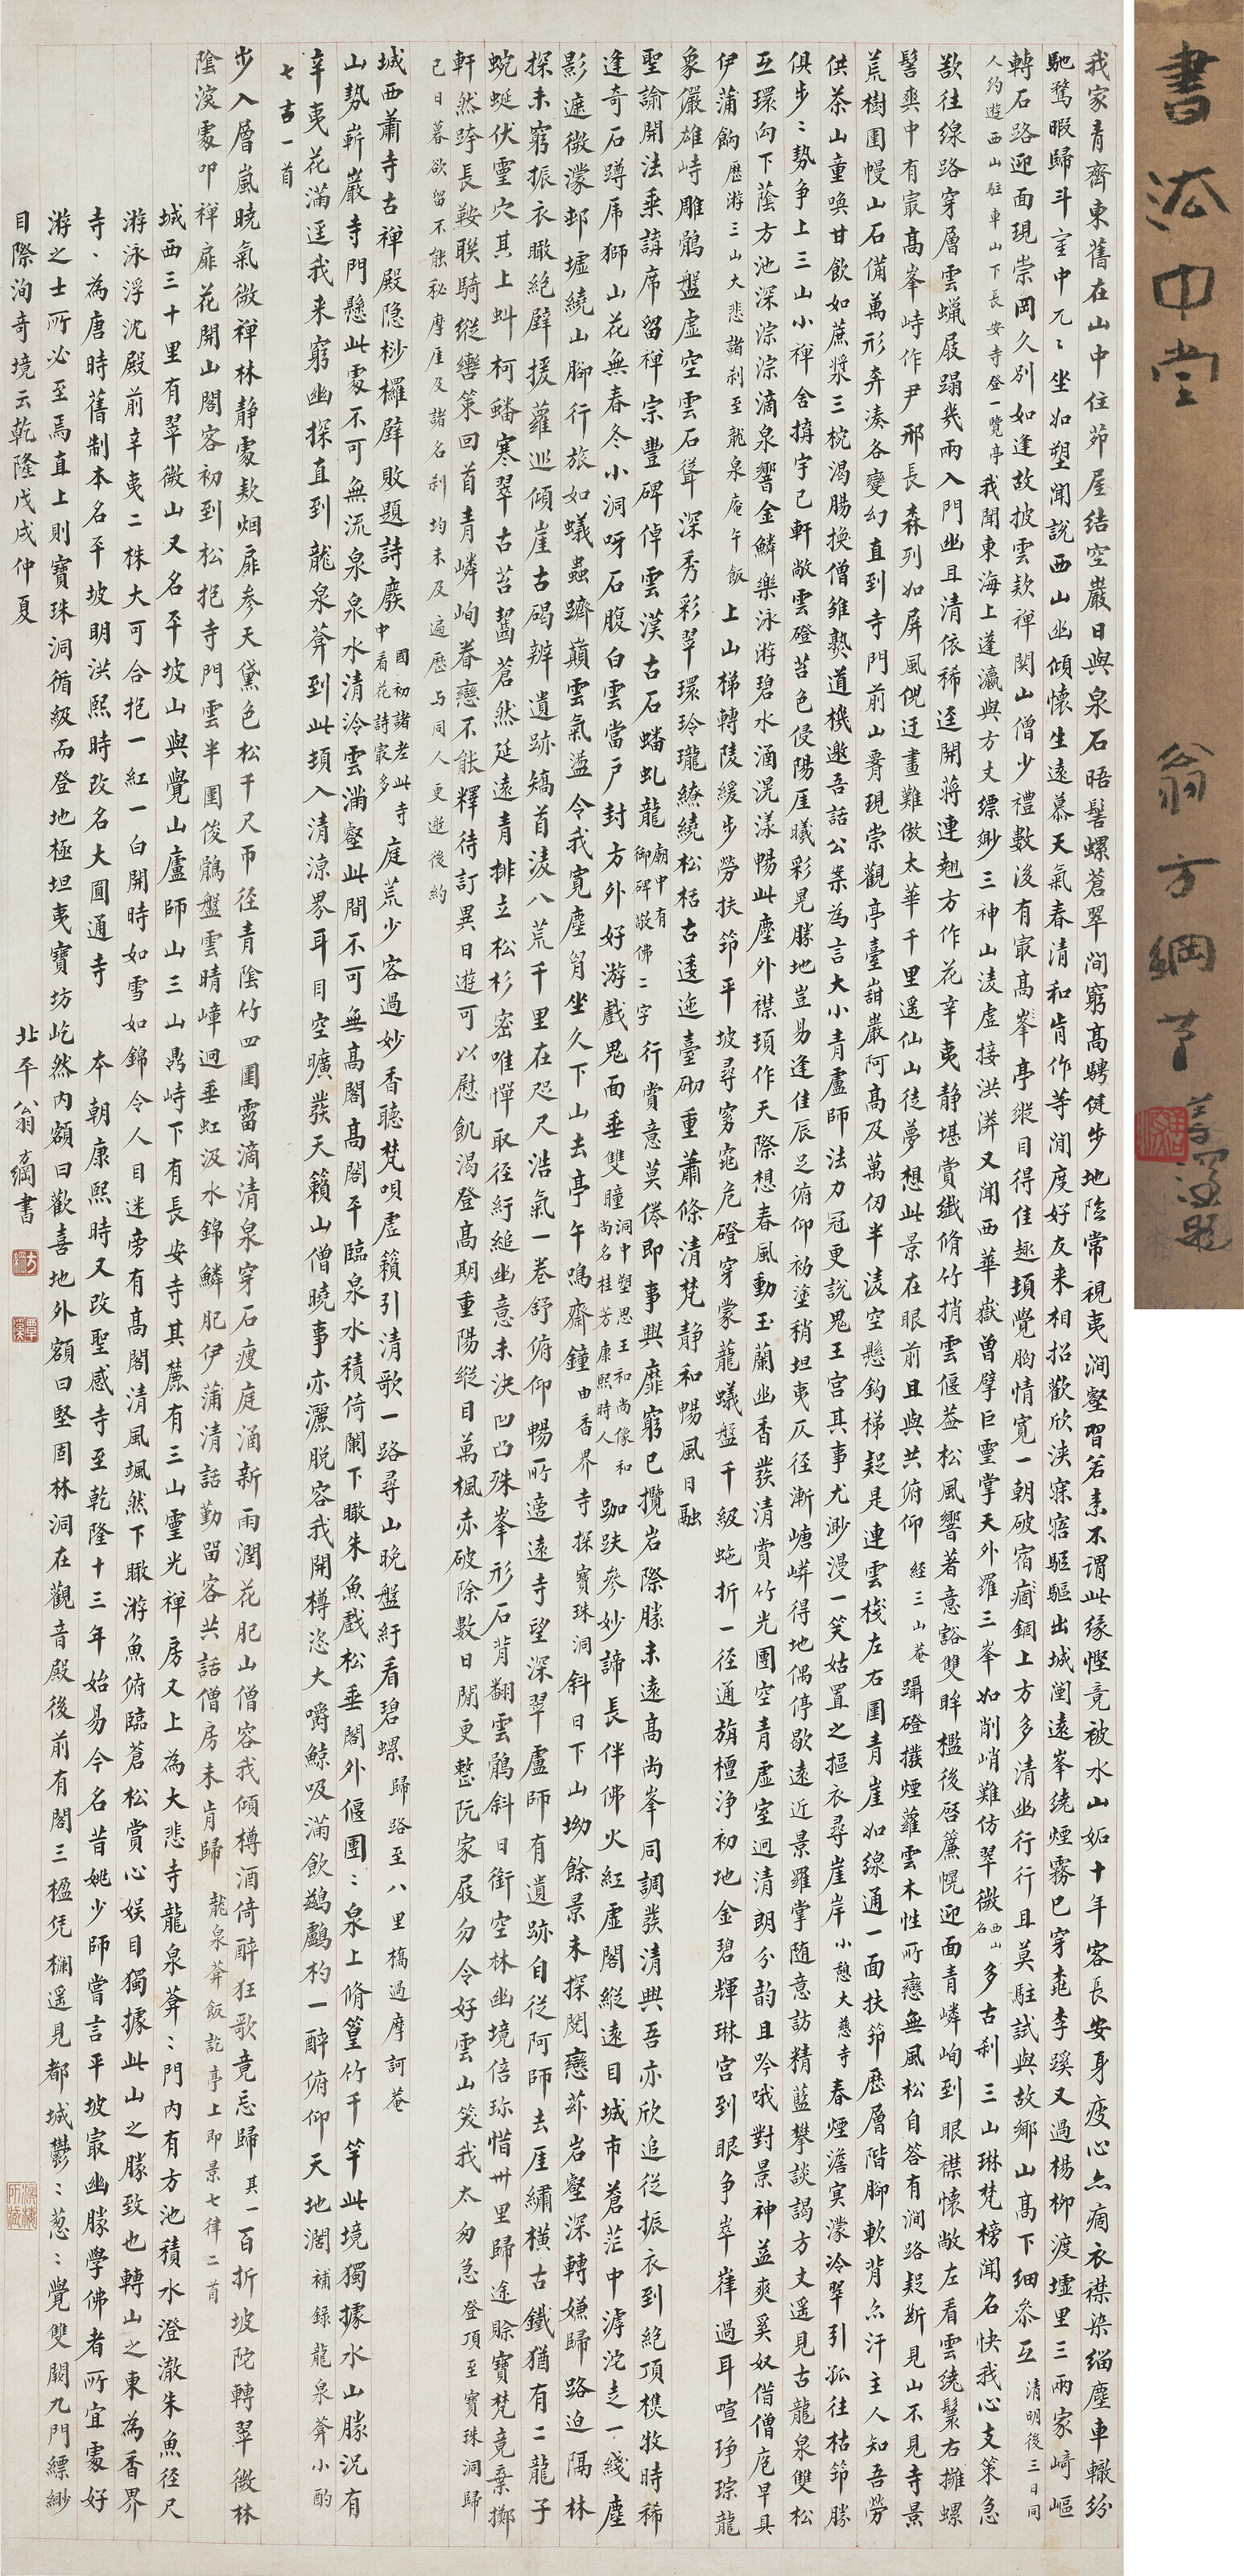 我家青齊東舊在山中住茆屋結空巖日與泉石晤髻螺蒼翠澗窮高騁健步地險常視夷澗壑習若素不謂此緣慳竟被水山妬十年客長安身疲心亦痼衣襟染緇塵車轍紛
馳騖暇歸斗室中兀兀坐如塑聞說西山幽傾懷生遠慕天氣春清和肯作等閒度好友来相招歡欣浹寐寤驅驅出城闉遠峯繞煙霧已穿桃李蹊又過楊柳渡墟里三兩家﨑嶇
轉石路迎面現崇岡久別如逢故披雲欵禪関山僧少禮數後有最高峯亭縱目得佳趣頓覺胸情寛一朝破宿痼錮上方多清幽行行且莫駐試與故鄉山高下細叅互 清明後三日同
人約遊西山駐車山下長安寺登一覽亭 我聞東海上蓬瀛與方丈縹緲三神山淩虛接洪漭又聞西華嶽曽擘巨靈掌天外羅三峯如削峭難仿翠微西山名多古刹 三山琳梵榜聞名快我心支策急
欲往線路穿層雲蠟屐蹋幾兩入門幽且清依稀逕開蔣連翹方作花辛夷静堪賞纖脩竹捎雲偃葢松風響著意豁雙眸檻後啓簾幌迎面青嶙峋到眼襟懷敞左看雲繞鬟右擁螺
髻爽中有最高峯峙作尹邢長森列如屏風倪迂畫難倣太華千里遥仙山徒夢想此景在眼前且與共俯仰 經三山菴 躡磴撥煙蘿雲木性所戀無風松自答有澗路疑斷見山不見寺景
荒樹圍幔山石備萬形奔湊各變幻直到寺門前山脊現崇觀亭臺嵌巖阿高及萬仞半淩空懸鈎梯疑是連雲棧左右圍青崖如線通一面扶筇歷層階腳軟背亦汗主人知吾勞
供茶山童喚甘飲如蔗漿三椀渴腸換僧雖熟道機邀吾話公案為言大小青盧師法力冠更說鬼王宮其事尤渺漫一笑姑置之摳衣尋崖岸 小憩大慈寺 春煙澹寞濛冷翠引孤往枯筇勝
俱步步勢争上三山小禪舍搆宇已軒敞雲磴苔色侵陽厓曦彩晃勝地豈易逢佳辰足俯仰初塗稍坦夷仄径漸嵣嵻得地偶停歇遠近景羅掌随意訪精藍攀談謁方丈遥見古龍泉雙松
互環向下蔭方池深淙淙滴泉響金鱗樂泳游碧水涵滉漾暢此塵外襟頓作天際想春風動玉蘭幽香發清賞竹光團空青虛室迥清朗分韵且吟哦對景神益爽奚奴偕僧庖早具
伊蒲餉 歷游三山大悲諸刹至龍泉庵午飯 上山梯轉陵緩步勞扶筇平坡尋窈窕危磴穿蒙蘢蟻盤千級蛇折一径通旃檀浄初地金碧輝琳宫到眼争崒嵂過耳喧琤琮龍
象儼雄峙雕鶻盤虛空雲石聳深秀彩翠環玲瓏繚繞松栝古逶迤臺砌重蕭條清梵静和暢風日融
聖諭開法乗講席留禪宗豐碑倬雲漢古石蟠虬龍 廟中有御碑敬佛二字 行賞意莫倦即事興靡窮已攬岩際勝未遠高尚峯同調發清興吾亦欣追從振衣到絶頂樵牧時稀
逢奇石蹲席獅山花無春冬小洞呀石腹白雲當戸封方外好游戲鬼面垂雙瞳 洞中塑思王和尚像和尚名桂芳康熙時人 跏趺參妙諦長伴佛火紅虛閣縱遠目城市蒼茫中滹沱走一綫塵
影遮微濛邨墟繞山腳行旅如蟻蟲躋巔雲氣盪令我寛塵胷坐久下山去亭午鳴齋鐘 由香界寺探寶珠洞 斜日下山坳餘景未探閱戀茲岩壑深轉嫌歸路迫隔林
探未窮振衣瞰絶壁援蘿巡傾崖古碣辨遺跡矯首淩八荒千里在咫尺浩氣一卷舒俯仰暢所適遠寺望深翠盧師有遺跡自從阿師去厓繡横古鐵猶有二龍子
蜿蜒伏靈穴其上虯柯蟠寒翠古苔齧蒼然延遠青排立松杉密唯憚取径紆縋幽意未決凹凸殊峯形石背翻雲鶻斜日銜空林幽境倍珍惜卅里歸途賒寶梵竟棄擲
軒然跨長鞍聯騎縱轡策回首青嶙峋眷戀不能釋待訂異日遊可以慰飢渴登高期重陽縱目萬楓赤破除數日閒更整阮家屐勿令好雲山笑我太匆急 登頂至寶珠洞歸
已日暮欲留不能秘摩厓及諸名刹均未及遍歷与同人更遊後約
城西蕭寺古禪殿隐桫欏壁敗題詩廢 國初諸老此寺中看花詩最多 庭荒少客過妙香聴梵唄虛籟引清歌一路尋山晚盤紆看碧螺 歸路至八里橋過摩訶菴
山勢嶄巖寺門懸此處不可無流泉泉水清泠雲滿壑此間不可無高閣高閣平臨泉水積倚闌下瞰朱魚戲松垂閣外偃團團泉上脩篁竹千竿此境獨據水山勝況有
辛夷花滿逕我来窮幽探直到龍泉菴到此頓入清涼界耳目空曠發天籟山僧曉事亦灑脱容我開樽恣大嚼鯨吸滿飲鸕鷀杓一醉俯仰天地濶 補録龍泉菴小酌
七古一首
步入層嵐曉氣微禪林静處欵烟扉参天黛色松千尺帀径青陰竹四圍霤滴清泉穿石瘦庭涵新雨潤花肥山僧容我傾樽酒倚醉狂歌竟忘歸 其一百折坡陀轉翠微林
陰深處叩禪扉花開山閣客初到松抱寺門雲半圍俊鶻盤雲晴嶂迥垂虹汲水錦鱗肥伊蒲清話勤留客共話僧房未肯歸 龍泉菴飯訖亭上即景七律二首
城西三十里有翠微山又名平坡山與覺山盧師山三山鼎峙下有長安寺其麓有三山靈光禪房又上為大悲寺龍泉菴菴門內有方池積水澄澈朱魚径尺
游泳浮沈殿前辛夷二株大可合抱一紅一白開時如雪如錦令人目迷旁有高閣清風颯然下瞰游魚俯臨蒼松賞心娱目獨據此山之勝致也轉山之東為香界
寺、為唐時舊制本名平坡明洪熙時改名大圓通寺 本朝康熙時又改聖感寺至乾隆十三年始易今名昔姚少師嘗言平坡最幽勝學佛者所宜處好
游之士所必至焉直上則寶珠洞循級而登地極坦夷寶坊屹然內額曰歡喜地外額曰堅固林洞在觀音殿後前有閣三楹凭欄遥見都城鬱鬱葱葱覺雙闕九門縹緲
目際洵奇境云乾隆戊戌仲夏 北平翁方綱書
書法中堂
翁方綱